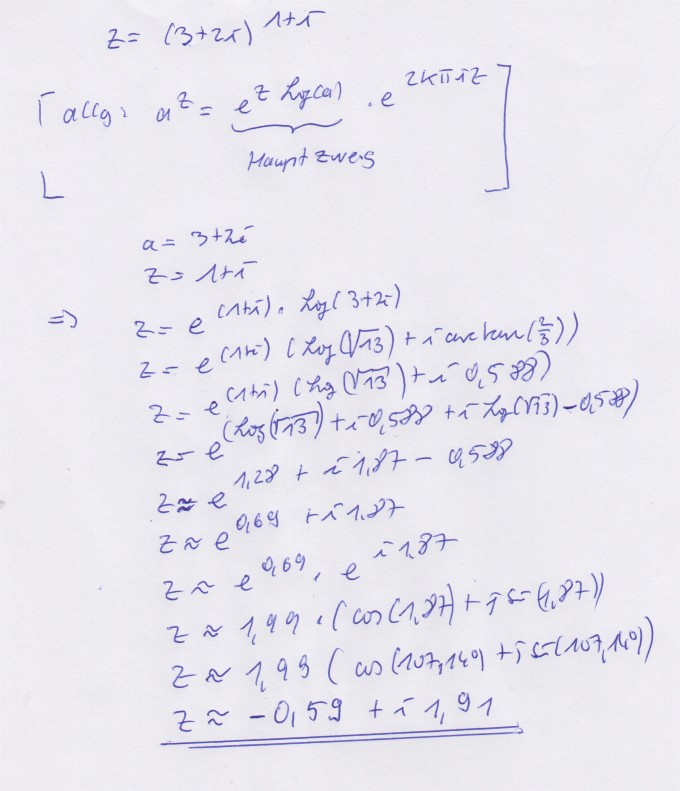 z = (3+2i)^{1+i}
[allg: a^z = e^{z Log(a)} · e^{2kπiz}]
Hauptzweig
a = 3+2i
z = 1+i
=> z = e^{(1+i) · Log(3+2i)}
z = e^{(1+i) (Log(√13) + i arctan(2/3))}
z = e^{(1+i) (Log(√13) + i 0,588)}
z = e^{(Log(√13) + i 0,588 + i Log(√13) - 0,588)}
z ≈ e^{1,28 + i 1,87 - 0,588}
z ≈ e^{0,69 + i 1,87}
z ≈ e^{0,69} · e^{i 1,87}
z ≈ 1,99 · (cos(1,87) + i sin(1,87))
z ≈ 1,99 (cos(107,14°) + i sin(107,14°))
z ≈ -0,59 + i 1,91